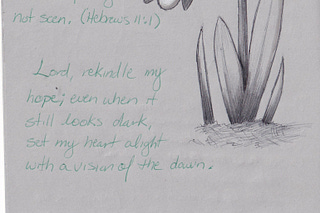 not seen. (Hebrews 11:1)
Lord, rekindle my
hope; even when it
still looks dark,
set my heart alight
with a vision of the dawn.